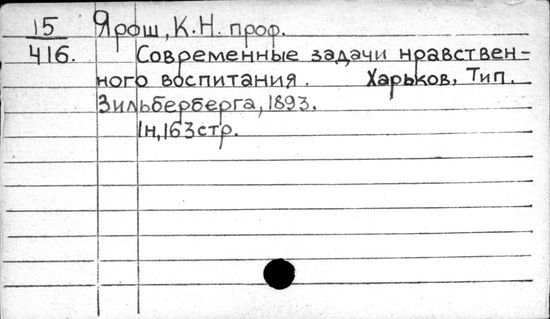 15 Ярош, К.Н. проф.
416. Современные задачи нравствен-
ного воспитания. Харьков, Тип.
Зильберберга, 1893.
1н, 163 стр.